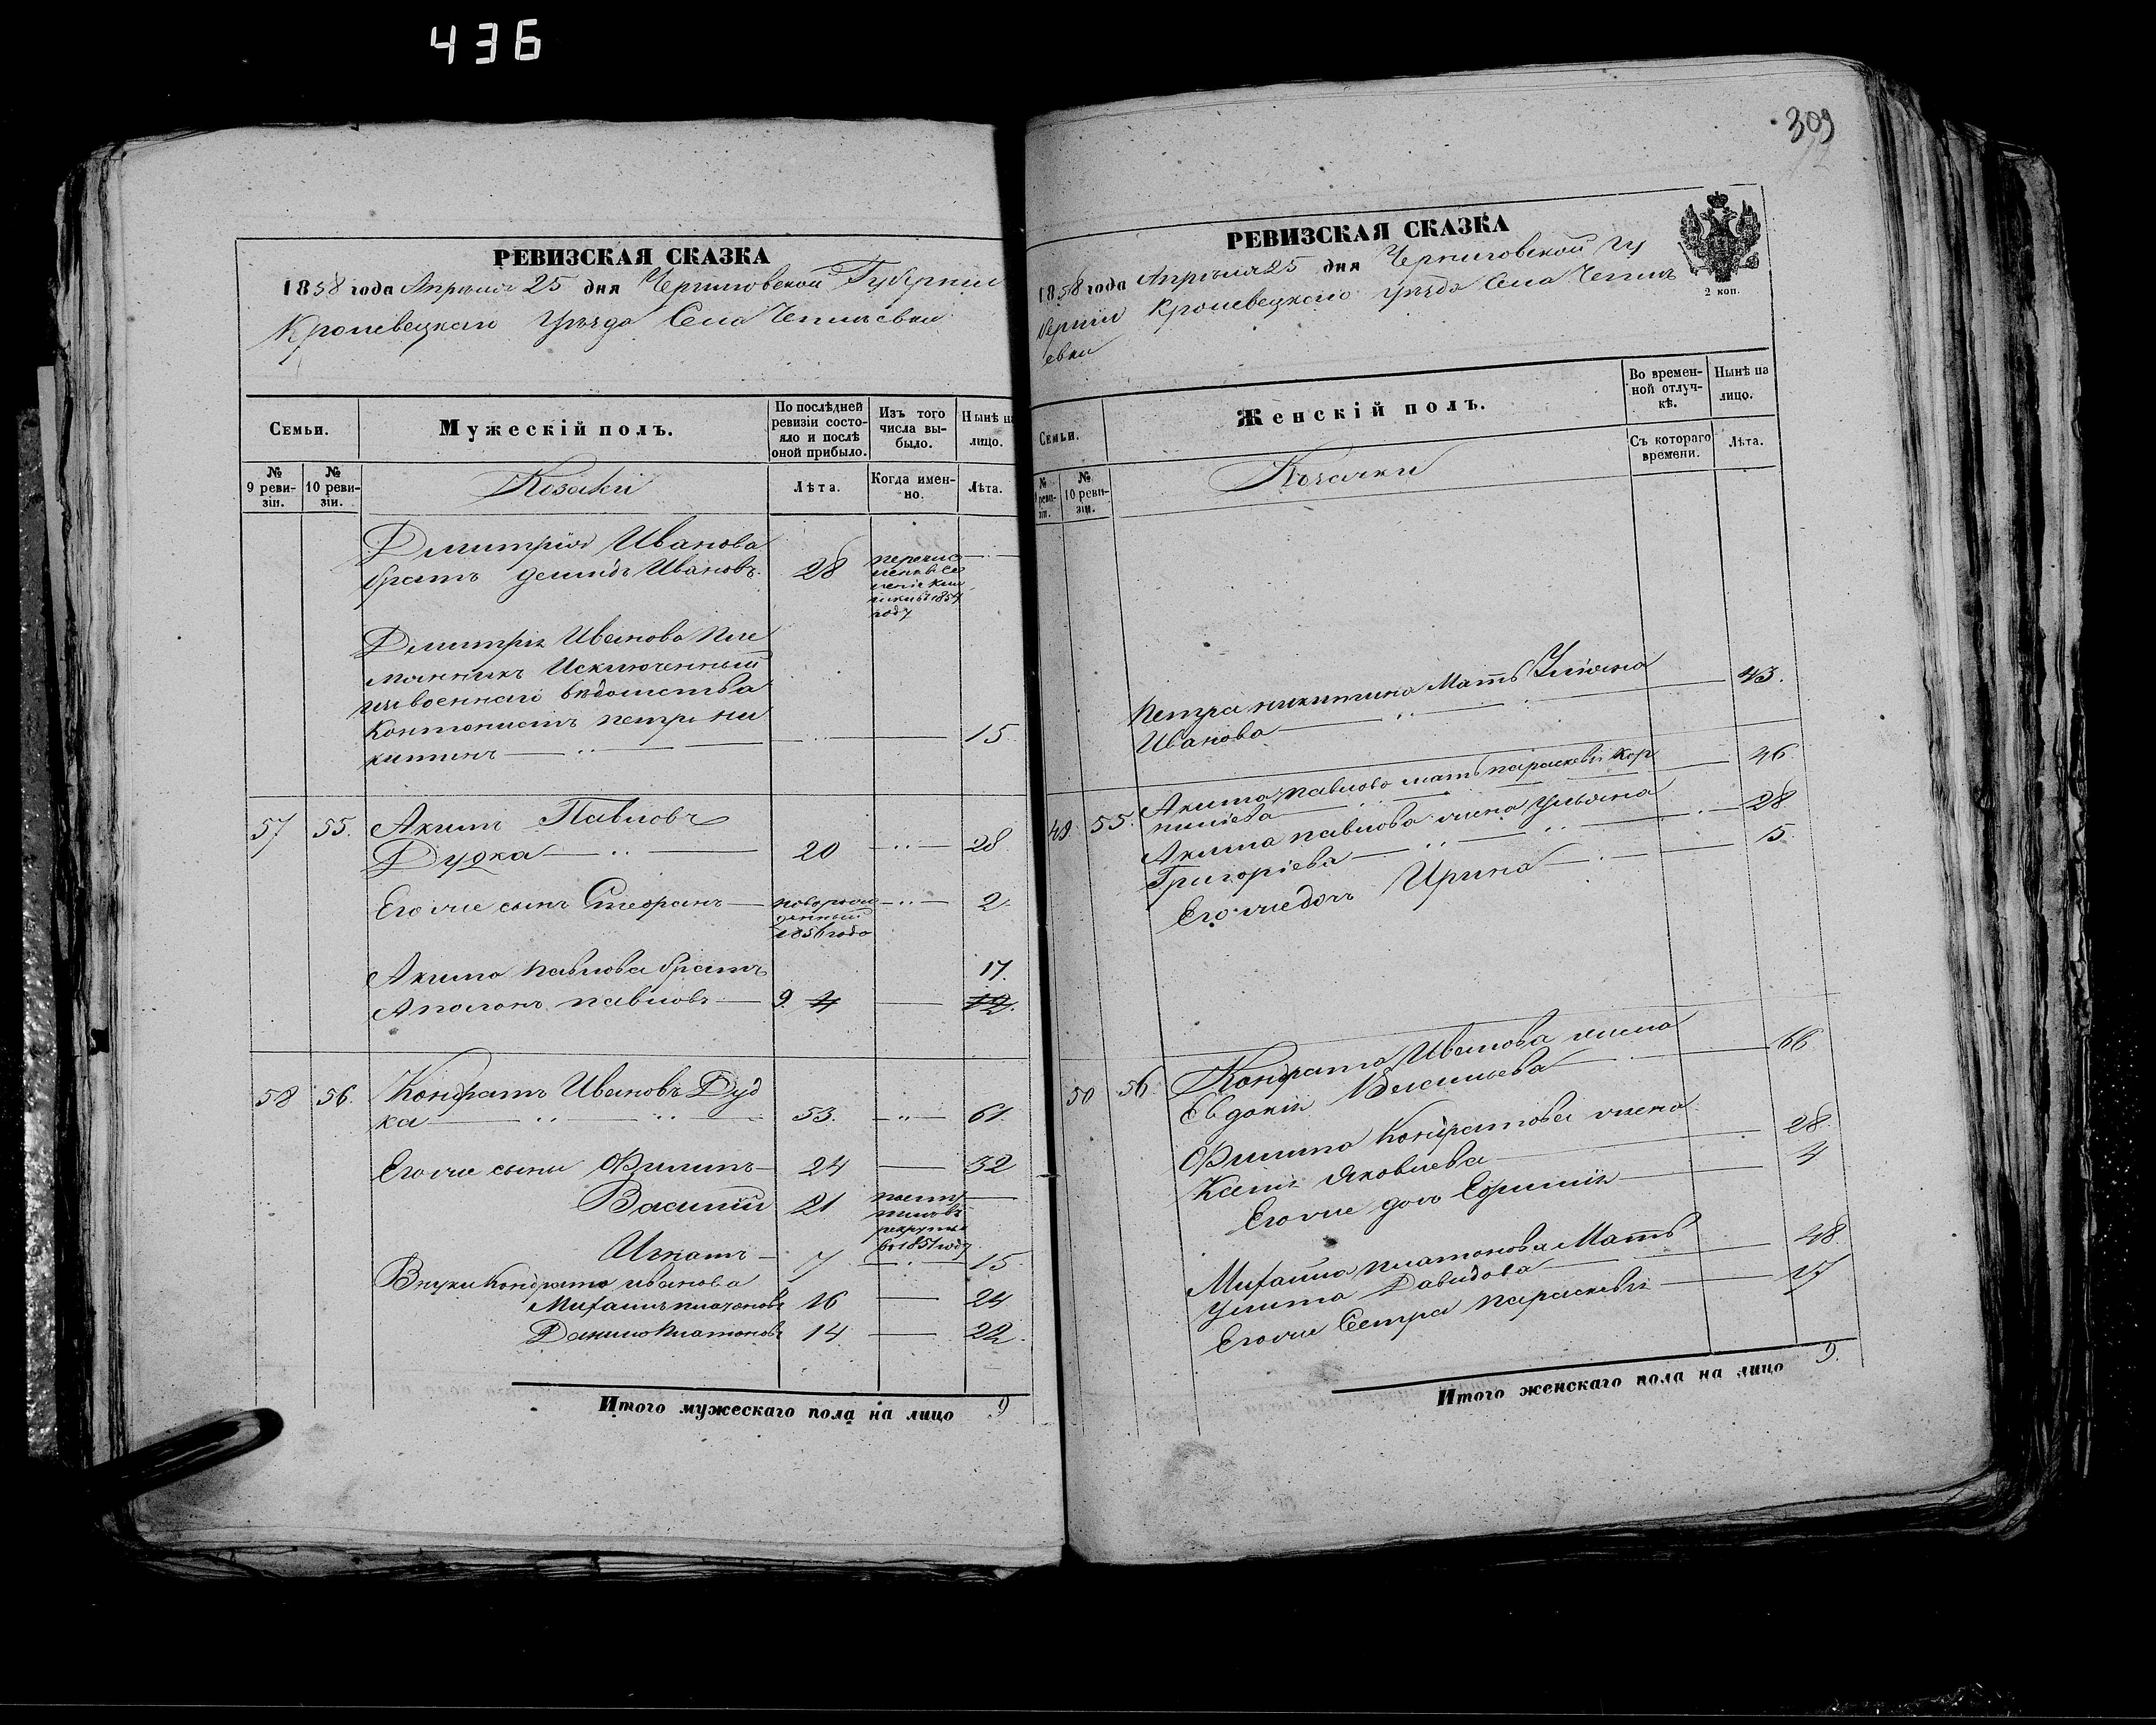 436
РЕВИЗСКАЯ СКАЗКА
1858 года Апрѣля 25 дня Черниговской Губерніи
Кролевецкаго Уѣзда Села Чепліевки
Семьи.
Мужескій полъ.
По послѣдней ревизіи состояло и послѣ оной прибыло.
Изъ того числа выбыло.
Нынѣ на лицо.
№ 9 ревизіи.
№ 10 ревизіи.
Козаки
Лѣта.
Когда именно.
Лѣта.
Дмитрія Иванова
братъ Демидъ Ивановъ. 28
въ 1854
году
Дмитрія Иванова пле
мянникъ Исключенный
изъ военнаго вѣдомства
Контонистъ Петръ Ни
китинъ 15
57 55. Акимъ Павловъ
Дудка 20 28
Его же сынъ Стефанъ новорож 2.
денный
1856 года
Акима Павлова братъ 17.
Аполонъ Павловъ 9. 4 12.
58 56. Кондратъ Ивановъ Дуд
ка 53. 61.
Его же сыны Филипъ 24 32
Василій 21 посту
пилъ въ
рекруты
въ 1851 году
Игнатъ 7 15
Внуки Кондрата Иванова
Михаилъ Платоновъ 16 24
Данило Платоновъ 14 22.
Итого мужескаго пола на лицо 9
309
РЕВИЗСКАЯ СКАЗКА
2 коп.
1858 года Апрѣля 25 дня Черниговской Гу
берніи Кролевецкаго Уѣзда Села Чеплі
евки
Семьи.
Женскій полъ.
Во временной отлучкѣ.
Нынѣ на лицо.
№ 9 ревизіи.
№ 10 ревизіи.
Козачки
Съ котораго времени.
Лѣта.
Петра Никитина Мать Уліяна
Иванова 43.
49. 55. Акима Павлова мать Параскевія Кор
ниліева 46
Акима Павлова жена Ульяна
Григоріева 28
Его же дочь Ирина 5.
50 56 Кондрата Иванова жена
Евдокія Власіева 66
Филипа Кондратова жена
Ксенія Яковлева 28.
Его же дочь Ефимія 4
Михаила Платонова Мать
Улита Давидова 48
Его же Сестра Параскевія 17
Итого женскаго пола на лицо 9.